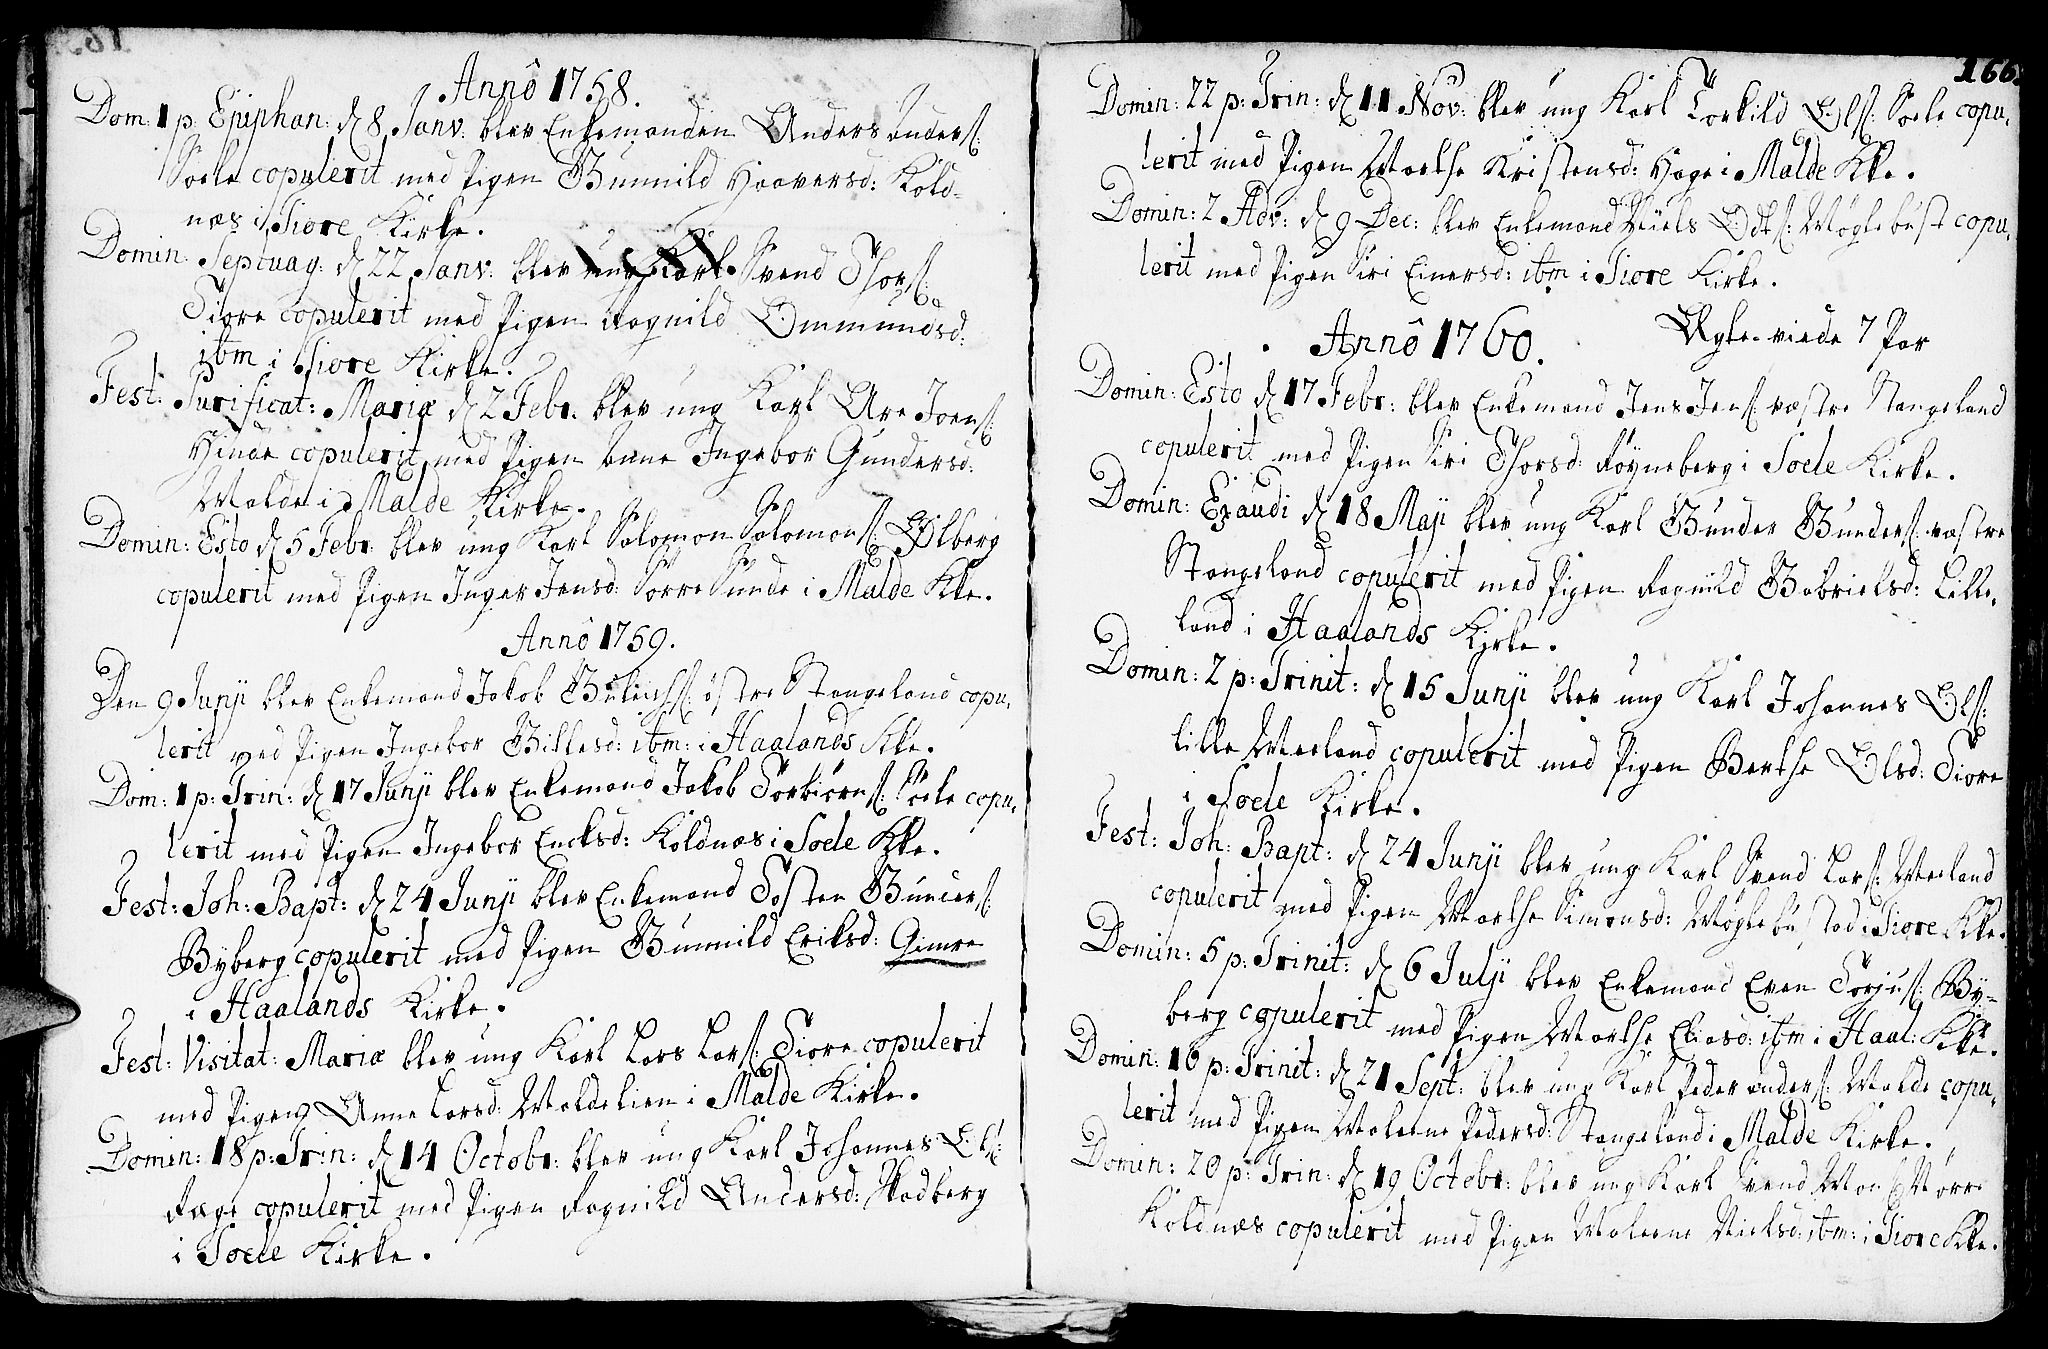 Annô 1758.
Dom: 1 p. Epiphan: d 8 Janv: blev Enkemanden Anders Anders:
Soele copulerit med Pigen Gunnild Haaversd: Kold-
næs i Tiore Kirke.
Domin: Septuag: d 22 Janv: blev ung Karl Svend Thors:
Tiore copulerit med Pigen Ragnild Ommundsd:
ibm i Tiore Kirke.
Fest: Purificat: Mariæ d 2 Febr: blev ung Karl Are Joens:
Hinde copulerit med Pigen Anne Ingebor Gundersd:
Malde i Malde Kirke.
Domin: Esto d 5 Febr: blev ung Karl Salomon Salomons: Ølberg
copulerit med Pigen Inger Jensd: Sørre Sunde i Malde Kke.
Annô 1759.
Den 9 Junji blev Enkemand Jakob østre Stangeland copu-
lerit ved Pigen Ingebor Billesd: ibm: i Haalands Kke.
Dom: 1 p: Trin: d 17 Junji blev Enkemand Jakob Torbiørns: Soele copu-
lerit med Pigen Ingebor Koldnæs i Soele Kke.
Fest: Joh: Bapt: d 24 Junji blev Enkemand Tosten Gunders:
Byberg copulerit med Pigen Gunnild Eriksd: Gimre
i Haalands Kirke.
Fest: Visitat: Mariæ blev ung Karl Lars Lars: Tiore copulerit
med Pigen Anne Larsd: Maldelien i Malde Kirke.
Domin: 18 p: Trin: d 14 Octobr: blev ung Karl Johannes Ols:
Ræge copulerit med Pigen Ragnild Andersd: Skadberg
i Soele Kirke.
166.
Domin: 22 p: Trin: d 11 Nov: blev ung Karl Torkild Ols: Soele copu-
lerit med Pigen Marthe Kristensd: Hage i Malde Kke.
Domin: 2 Adv: d 9 Dec: blev Enkemand Niels Odts: Møglebust copu-
lerit med Pigen Siri Einersd: ibm i Tiore Kirke.
Annô 1760. Ægte-viede 7 Par
Domin: Esto d 17 Febr: blev Enkemand Jens Jens: væstre Stangeland
copulerit med Pigen Siri Thorsd: Røyneberg i Soele Kirke.
Domin: Exaudi d 18 Maji blev ung Karl Gunder Gunders: væstre
Stangeland copulerit med Pigen Ragnild Gabrielsd: Lille-
land i Haalands Kirke.
Domin: 2 p: Trinit: d 15 Junji blev ung Karl Johannes Ols:
lille Meeland copulerit med Pigen Berthe Olsd: Tiore
i Soele Kirke.
Fest: Joh: Bapt: d 24 Junji blev ung Karl Svend Lars: Meeland
copulerit med Pigen Marthe Simonsd: Møglebustad i Tiore Kke.
Domin: 5 p: Trinit: d 6 Julji blev Enkemand Even Torjus: By-
berg copulerit med Pigen Marthe Eliasd: ibm i Haal: Kke.
Domin: 16 p: Trinit: d 21 Sept: blev ung Karl Peder Anders: Malde copu-
lerit med Pigen Maleene Pedersd: Stangeland i Malde Kirke.
Domin: 20 p: Trin: d 19 Octobr: blev ung Karl Svend Nørre
Koldnæs copulerit med Pigen Maleene Nielsd: ibm: i Tiore Kke.